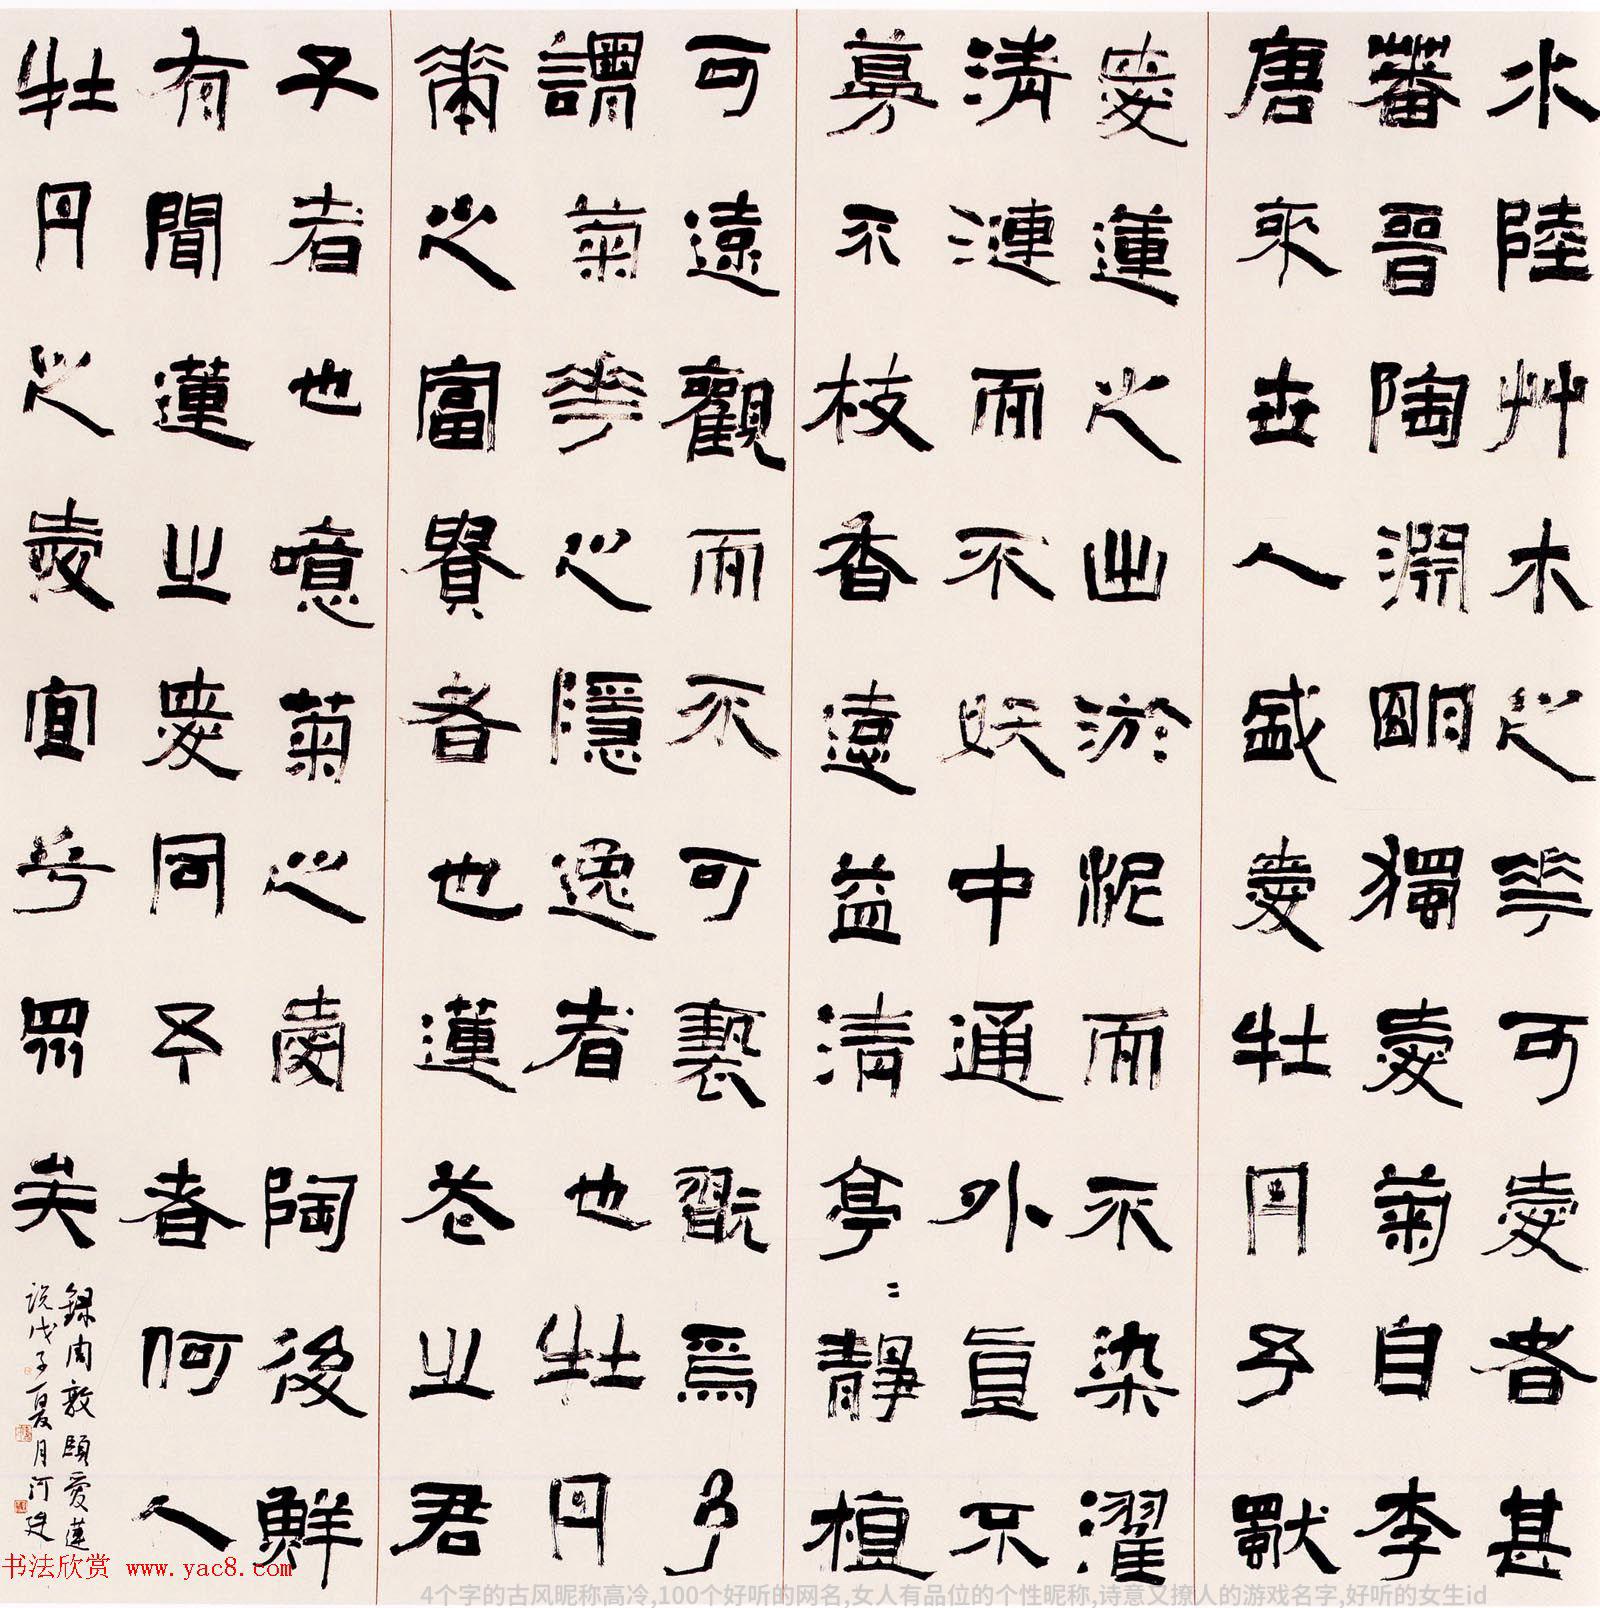 水陸艸木之華可愛者甚
蕃晉陶淵明獨愛菊自李
唐來世人盛愛牡丹予獨
愛蓮之出淤泥而不染濯
清漣而不妖中通外直不
蔓不枝香遠益清亭〻靜植
可遠觀而不可褻翫焉予
謂菊華之隱逸者也牡丹
華之富貴者也蓮花之君
子者也噫菊之愛陶後鮮
有聞蓮之愛同予者何人
牡丹之愛宜乎眾矣
錄周敦頤愛蓮
說戊子夏月河建
书法欣赏 www.yac8.com
4个字的古风昵称高冷,100个好听的网名,女人有品位的个性昵称,诗意又撩人的游戏名字,好听的女生id